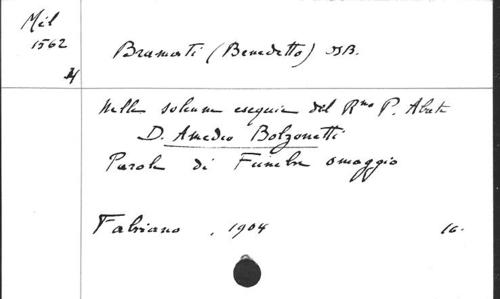 Mil
1562
4
Bramati (Benedetto) DB.
Nelle solenni esequie del Rmo P. Abate
D. Amedeo Bolzonetti
Parole di Funebre omaggio
Fabriano, 1904 16.